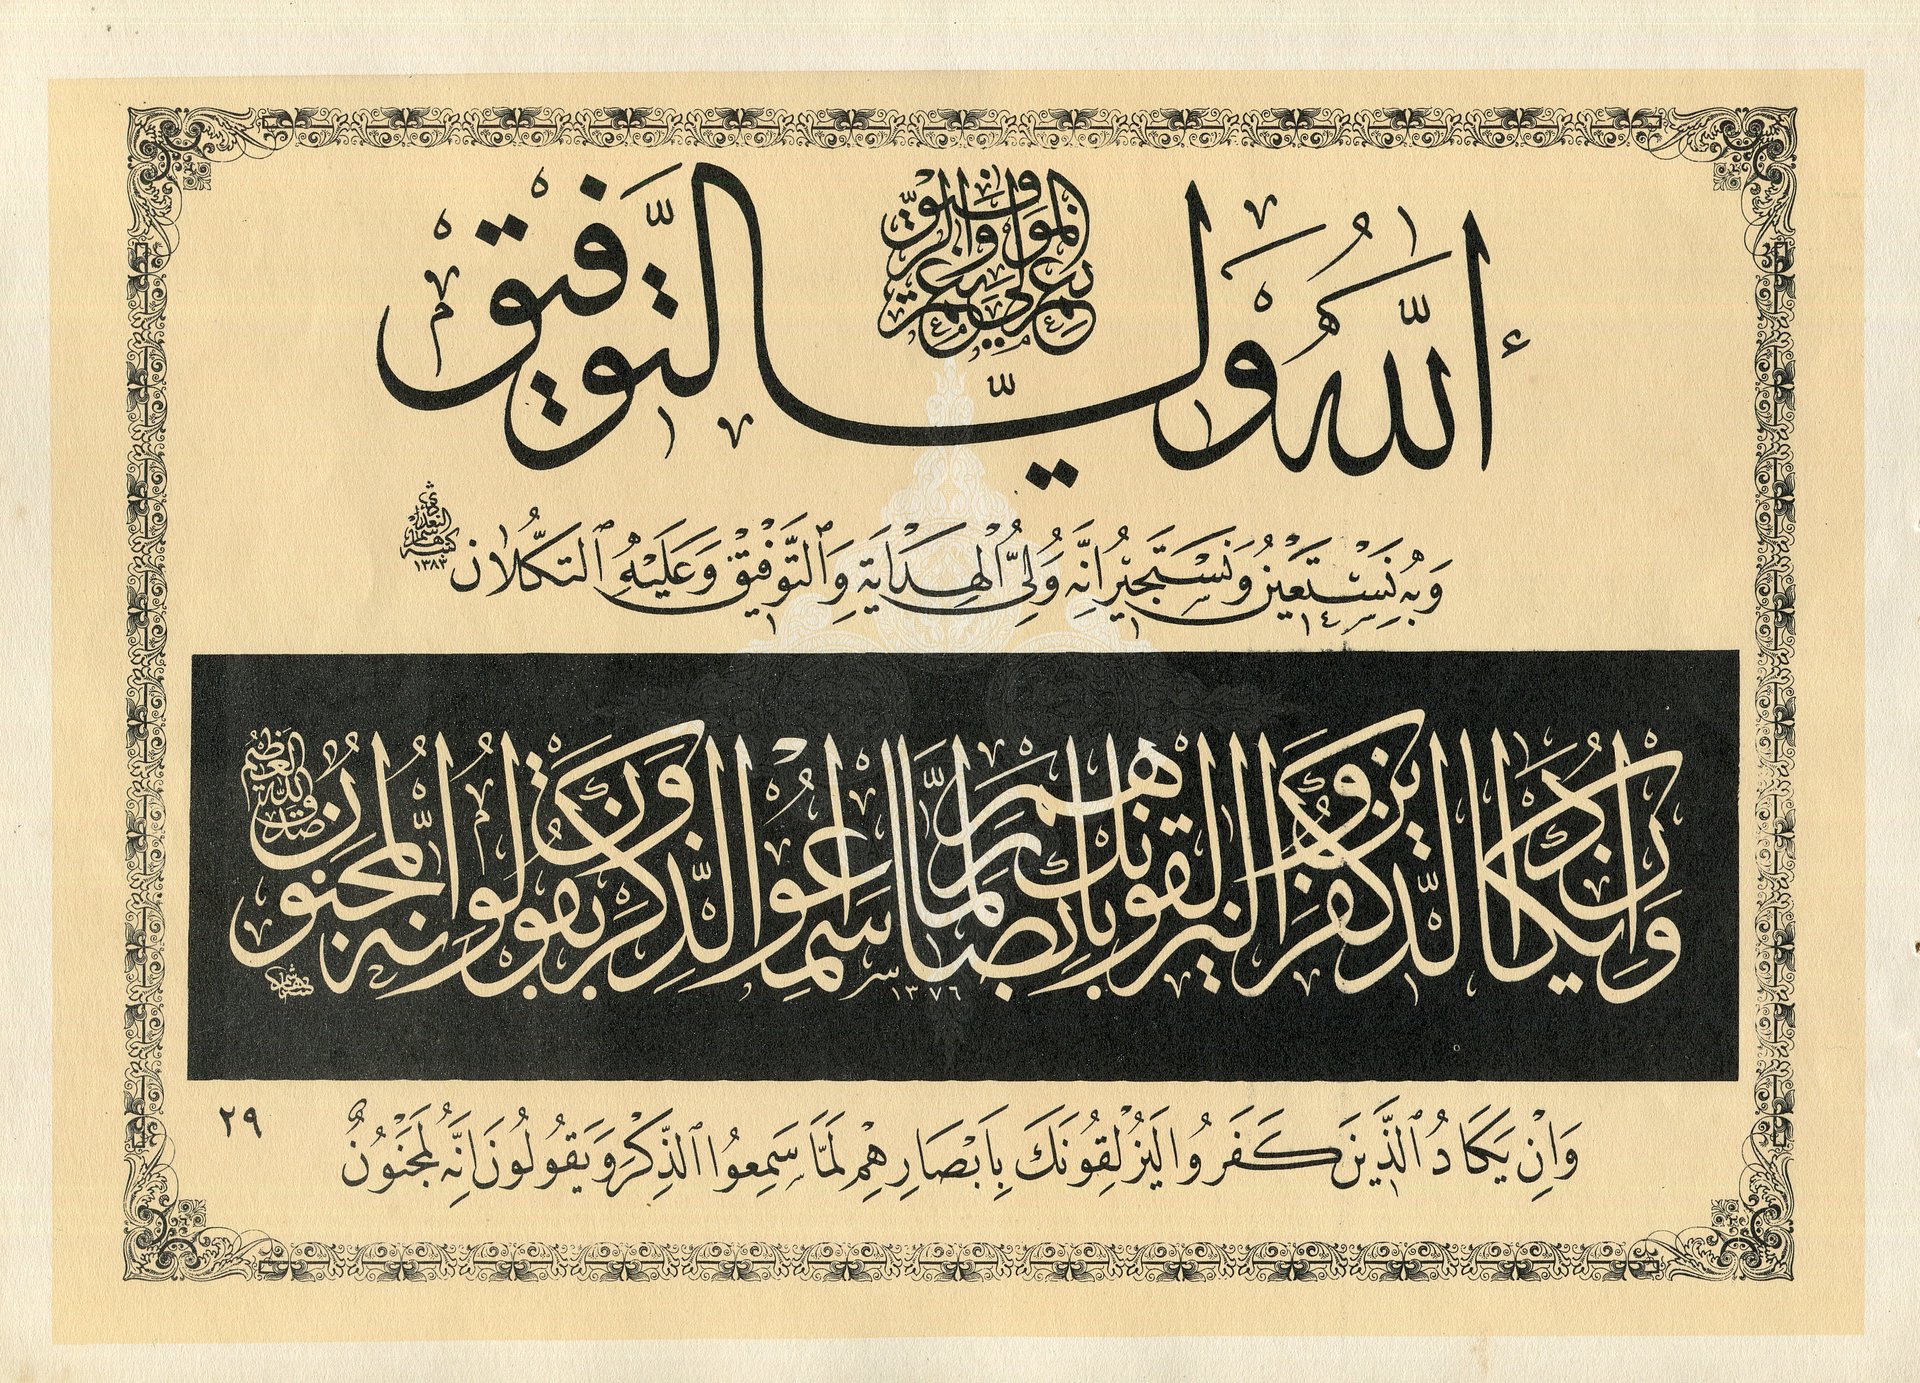 اَللّٰهُ وَلِيُّ التَّوْفِيقِ
نِعْمَ الْمَوْلَى وَنِعْمَ الرَّفِيقُ
وَبِهِ نَسْتَعِيْنُ وَنَسْتَجِيْرُ اِنَّهُ وَلِيُّ الْهِدَايَةِ وَالتَّوْفِيْقِ وَعَلَيْهِ التَّكْلَانُ
كتبه هاشم محمد البغدادي ١٣٨٣
وَاِنْ يَكَادُ الَّذِينَ كَفَرُوا لَيُزْلِقُونَكَ بِاَبْصَارِهِمْ لَمَّا سَمِعُوا الذِّكْرَ وَيَقُولُونَ اِنَّهُ لَمَجْنُونٌ
صدق الله العظيم
١٣٧٦
كتبه هاشم
وَاِنْ يَكَادُ الَّذِينَ كَفَرُوا لَيُزْلِقُونَكَ بِاَبْصَارِهِمْ لَمَّا سَمِعُوا الذِّكْرَ وَيَقُولُونَ اِنَّهُ لَمَجْنُونٌ
٢٩